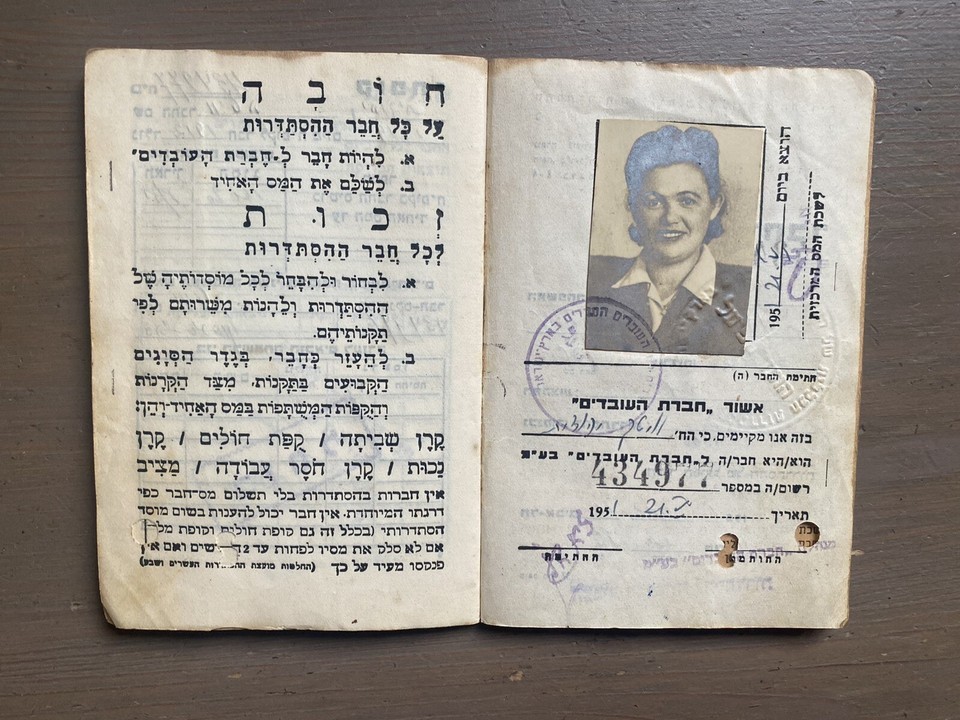 חוֹבָה
עַל כָּל חֲבֵר הַהִסְתַּדְּרוּת
א. לִהְיוֹת חָבֵר לְ„חֶבְרַת הָעוֹבְדִים"
ב. לְשַׁלֵּם אֶת הַמַּס הָאָחִיד
זְכוּת
לְכָל חֲבֵר הַהִסְתַּדְּרוּת
א. לִבְחוֹר וּלְהִבָּחֵר לְכָל מוֹסְדוֹתֶיהָ שֶׁל
הַהִסְתַּדְּרוּת וְלֵהָנוֹת מִשֵּׁרוּתָם לְפִי
תַּקָּנוֹתֵיהֶם.
ב. לְהֵעָזֵר כְּחָבֵר, בְּגֶדֶר הַסְּיָגִים
הַקְּבוּעִים בַּתַּקָּנוֹת, מִצַּד הַקְּרָנוֹת
וְהַקֻּפּוֹת הַמְשֻׁתָּפוֹת בַּמַּס הָאָחִיד־וְהֵן:
קֶרֶן שְׁבִיתָה / קֻפַּת חוֹלִים / קֶרֶן
נָכוּת / קֶרֶן חֹסֶר עֲבוֹדָה / מַצִּיב
אין חברות בהסתדרות בלי תשלום מס־חבר כפי
דרגתו המיוחדת. אין חבר יכול להענות בשום מוסד
הסתדרותי (בכלל זה גם קופת חולים וקופת מלוה)
אם לא סלק את מסיו לפחות עד 2 חדשים ואם אין
פנקסו מעיד על כך (החלטות מועצת ההסתדרות העשרים ושבע)
הוצא ביום
195
לשכת המס המרכזית
העובדים העברים בארץ־ישראל
חתימת החבר (ה)
אשור „חברת העובדים"
בזה אנו מקיימים, כי הח'
הוא/היא חבר/ה ל„חברת העובדים" בע"מ
רשום/ה במספר 434977
תאריך 195
החותמת
החתימה